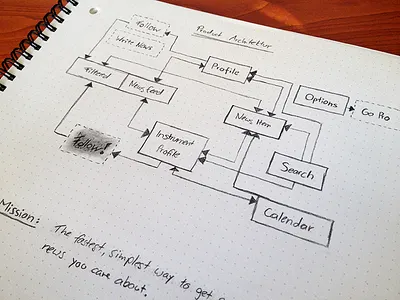 Product Architettur
Follow
Write News
Profile
Filtered
News Feed
Options
Go Pro
News Item
Follow!
Instrument
Profile
Search
Calendar
Mission:
The fastest, simplest way to get
news you care about.